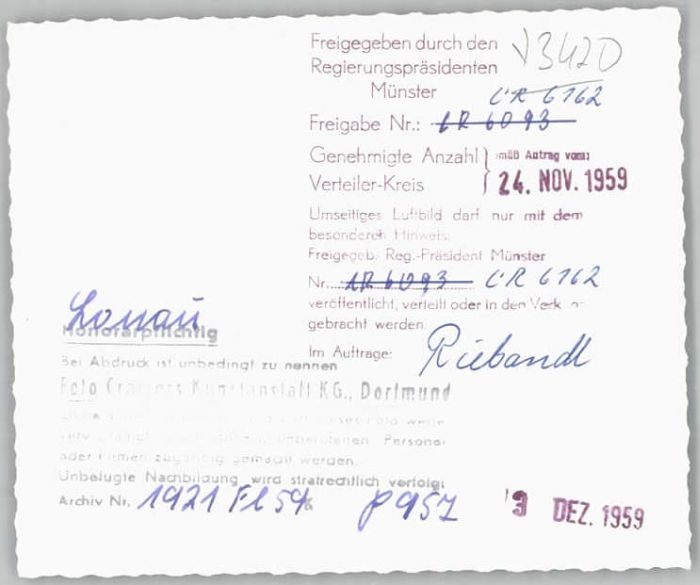 Freigegeben durch den
Regierungspräsidenten
Münster
V3420
CR 6162
Freigabe Nr.: CR 6093
Genehmigte Anzahl
Verteiler-Kreis
gemäß Antrag vom:
24. NOV. 1959
Umseitiges Luftbild darf nur mit dem
besonderen Hinweis:
Freigegeb. Reg.-Präsident Münster
Nr. CR 6093 CR 6162
veröffentlicht, verteilt oder in den Verk
gebracht werden.
Im Auftrage:
Lonau
Honorarpflichtig
Bei Abdruck ist unbedingt zu nennen
Foto Cramers Kunstanstalt KG., Dortmund
oder Firmen zugängig gemacht werden.
Unbefugte Nachbildung wird strafrechtlich verfolgt
Archiv Nr. 1921 Fl 59 p 957
3 DEZ. 1959